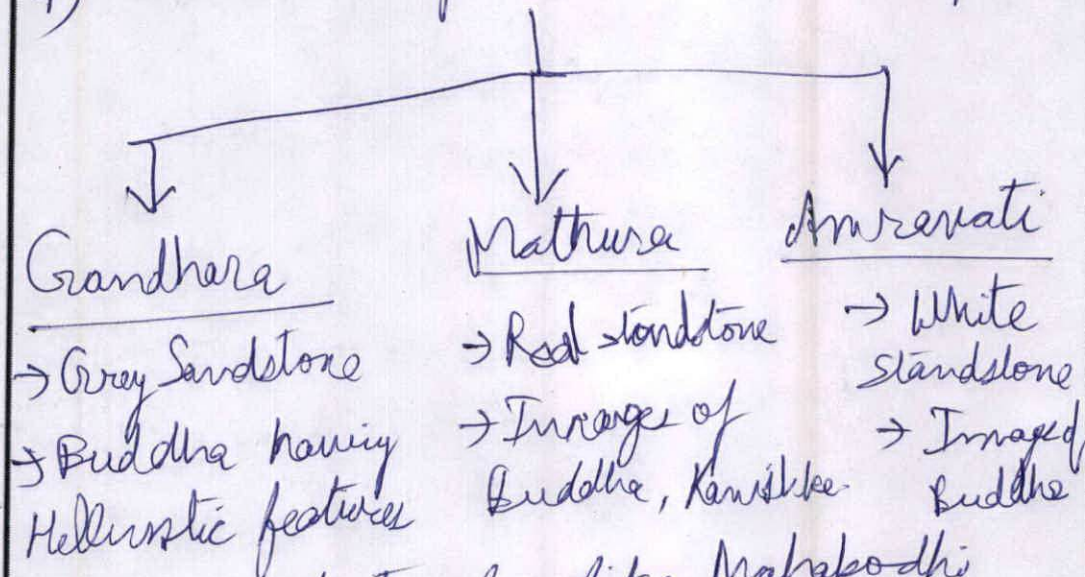 1)
Gandhara
→ Grey Sandstone
→ Buddha having
Hellinstic features
Mathura
→ Red standstone
→ Images of
Buddha, Kanishka
Amravati
→ White
standstone
→ Image of
Buddha
like Mahabodhi